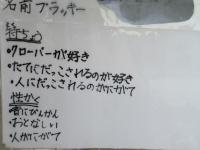 名前 ブラッキー
特ちょう
・クローバーが好き
・たてにだっこされるのが好き
・人にだっこされるのがにがて
性かく
・音にびんかん
・おとなしい
・人がにがて